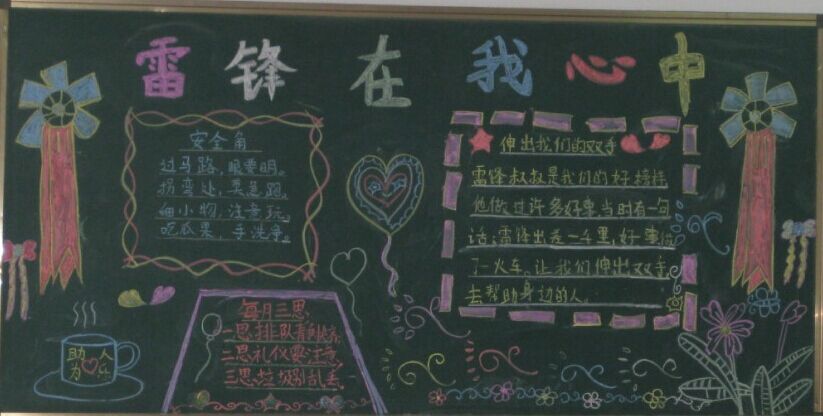 雷锋在我心中
安全角
过马路,眼要明。
拐弯处,莫急跑。
细小物,注意玩。
吃瓜果,手洗净。
伸出我们的双手
雷锋叔叔是我们的好榜样
他做过许多好事,当时有一句
话:雷锋出差一千里,好事做
了一火车。让我们伸出双手,
去帮助身边的人。
每月三思
一思排队
二思礼仪要注意
三思垃圾别乱丢
助人
为乐